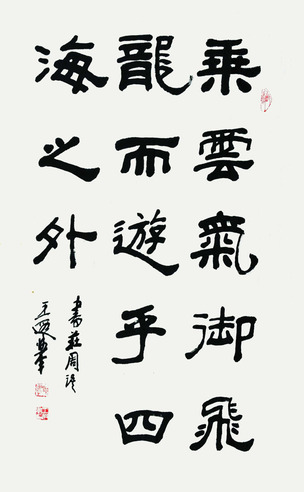 乘雲氣御飛
龍而遊乎四
海之外
書莊周語